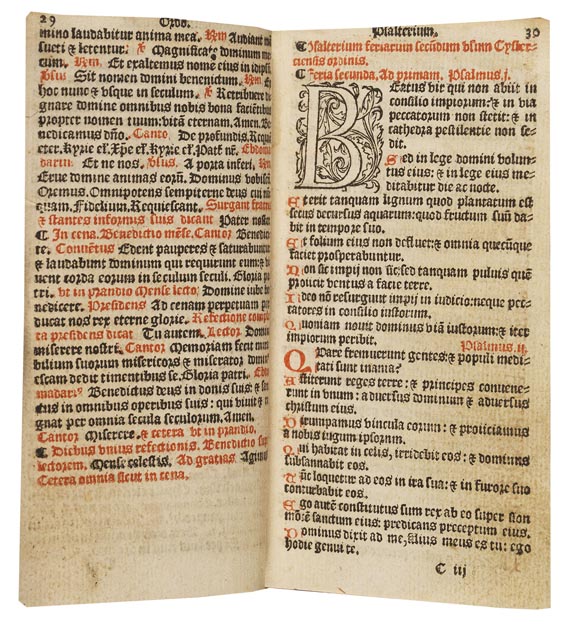 29
Ordo.
mino laudabitur anima mea. Rm̄ Audiant mā
sueti & letentur. ℟ Magnificatꝫ dominum me
cum. Rm̄. Et exaltemus nome eius in
Vsus Sit nomen domini benedictum. Rm̄.
hoc nunc & vsque in seculum. ℟ Retribuere
gnare domine omnibus nobis bona faciētibꝰ
propter nomen tuum: vitā eternam. Amen.
nedicamus dño. Canto. De profundis.
eter. Kyrie el'. Xp̄e el'. Kyrie el'. Pat' nr̄.
dariꝰ. Et ne nos. Vsus. A porta inferi.
Erue domine animas eorū. Dominus
Oremus. Omnipotens sempiterne deus cui nū
quam. Fidelium. Requiescant. Surgant
& stantes informis suis dicant Pater noster
¶ In cena. Benedictio mēse. Cantor Benedici
te. Conuētus Edent pauperes & saturabuntur
& laudabunt dominum qui requirunt eum: &
uent corda eorum in seculum seculi. Gloria pa
tri. vt in prandio Mense lecto Domine iube
nedicere. Presidens Ad cenam perpetuam
ducat nos rex eterne glorie. Refectione comple
ta presidens dicat Tu autem. Lector Domine
miserere nostri. Cantor Memoriam fecit mira
bilium suorum misericors & miserator dominus
escam dedit timentibus se. Gloria patri.
madariꝰ Benedictus deus in donis suis: & san
ctus in omnibus operibus suis: qui viuit & re
gnat per omnia secula seculorum. Amen.
Cantor Miserere. & cetera vt in prandio.
¶ Diebus vnius refectionis. Benedictio
lectorem. Mense celestis. Ad gratias Agimus
Cetera omnia sicut in cena.
Psalterium. 30
¶ Psalterium feriarum secūdum vsum Cyster-
ciensis ordinis.
¶ Feria secunda. Ad primam. Psalmus.j.
BEatus vir qui non abiit in
consilio impiorum: & in via
peccatorum non stetit: & in
cathedra pestilentie non se-
dit.
Sed in lege domini volun-
tas eius: & in lege eius me-
ditabitur die ac nocte.
Et erit tanquam lignum quod plantatum est
secus decursus aquarum: quod fructum suū da-
bit in tempore suo.
Et folium eius non defluet: & omnia quecūque
faciet prosperabuntur.
Non sic impij non sic: sed tanquam puluis quē
proiicit ventus a facie terre.
Ideo nō resurgunt impij in iudicio: neque pec-
catores in consilio iustorum.
Quoniam nouit dominus viā iustorum: & iter
impiorum peribit. Psalmus.ij.
Quare fremuerunt gentes: & populi medi-
tati sunt inania?
Astiterunt reges terre: & principes conuene-
runt in vnum: aduersus dominum & aduersus
christum eius.
Dirumpamus vincula eorum: & proiiciamus
a nobis iugum ipsorum.
Qui habitat in celis, irridebit eos: & dominus
subsannabit eos.
Tūc loquetur ad eos in ira sua: & in furore suo
conturbabit eos.
Ego autē constitutus sum rex ab eo super sion
mōtē sanctum eius: predicans preceptum eius.
Dominus dixit ad me, filius meus es tu: ego
hodie genui te.
C iij